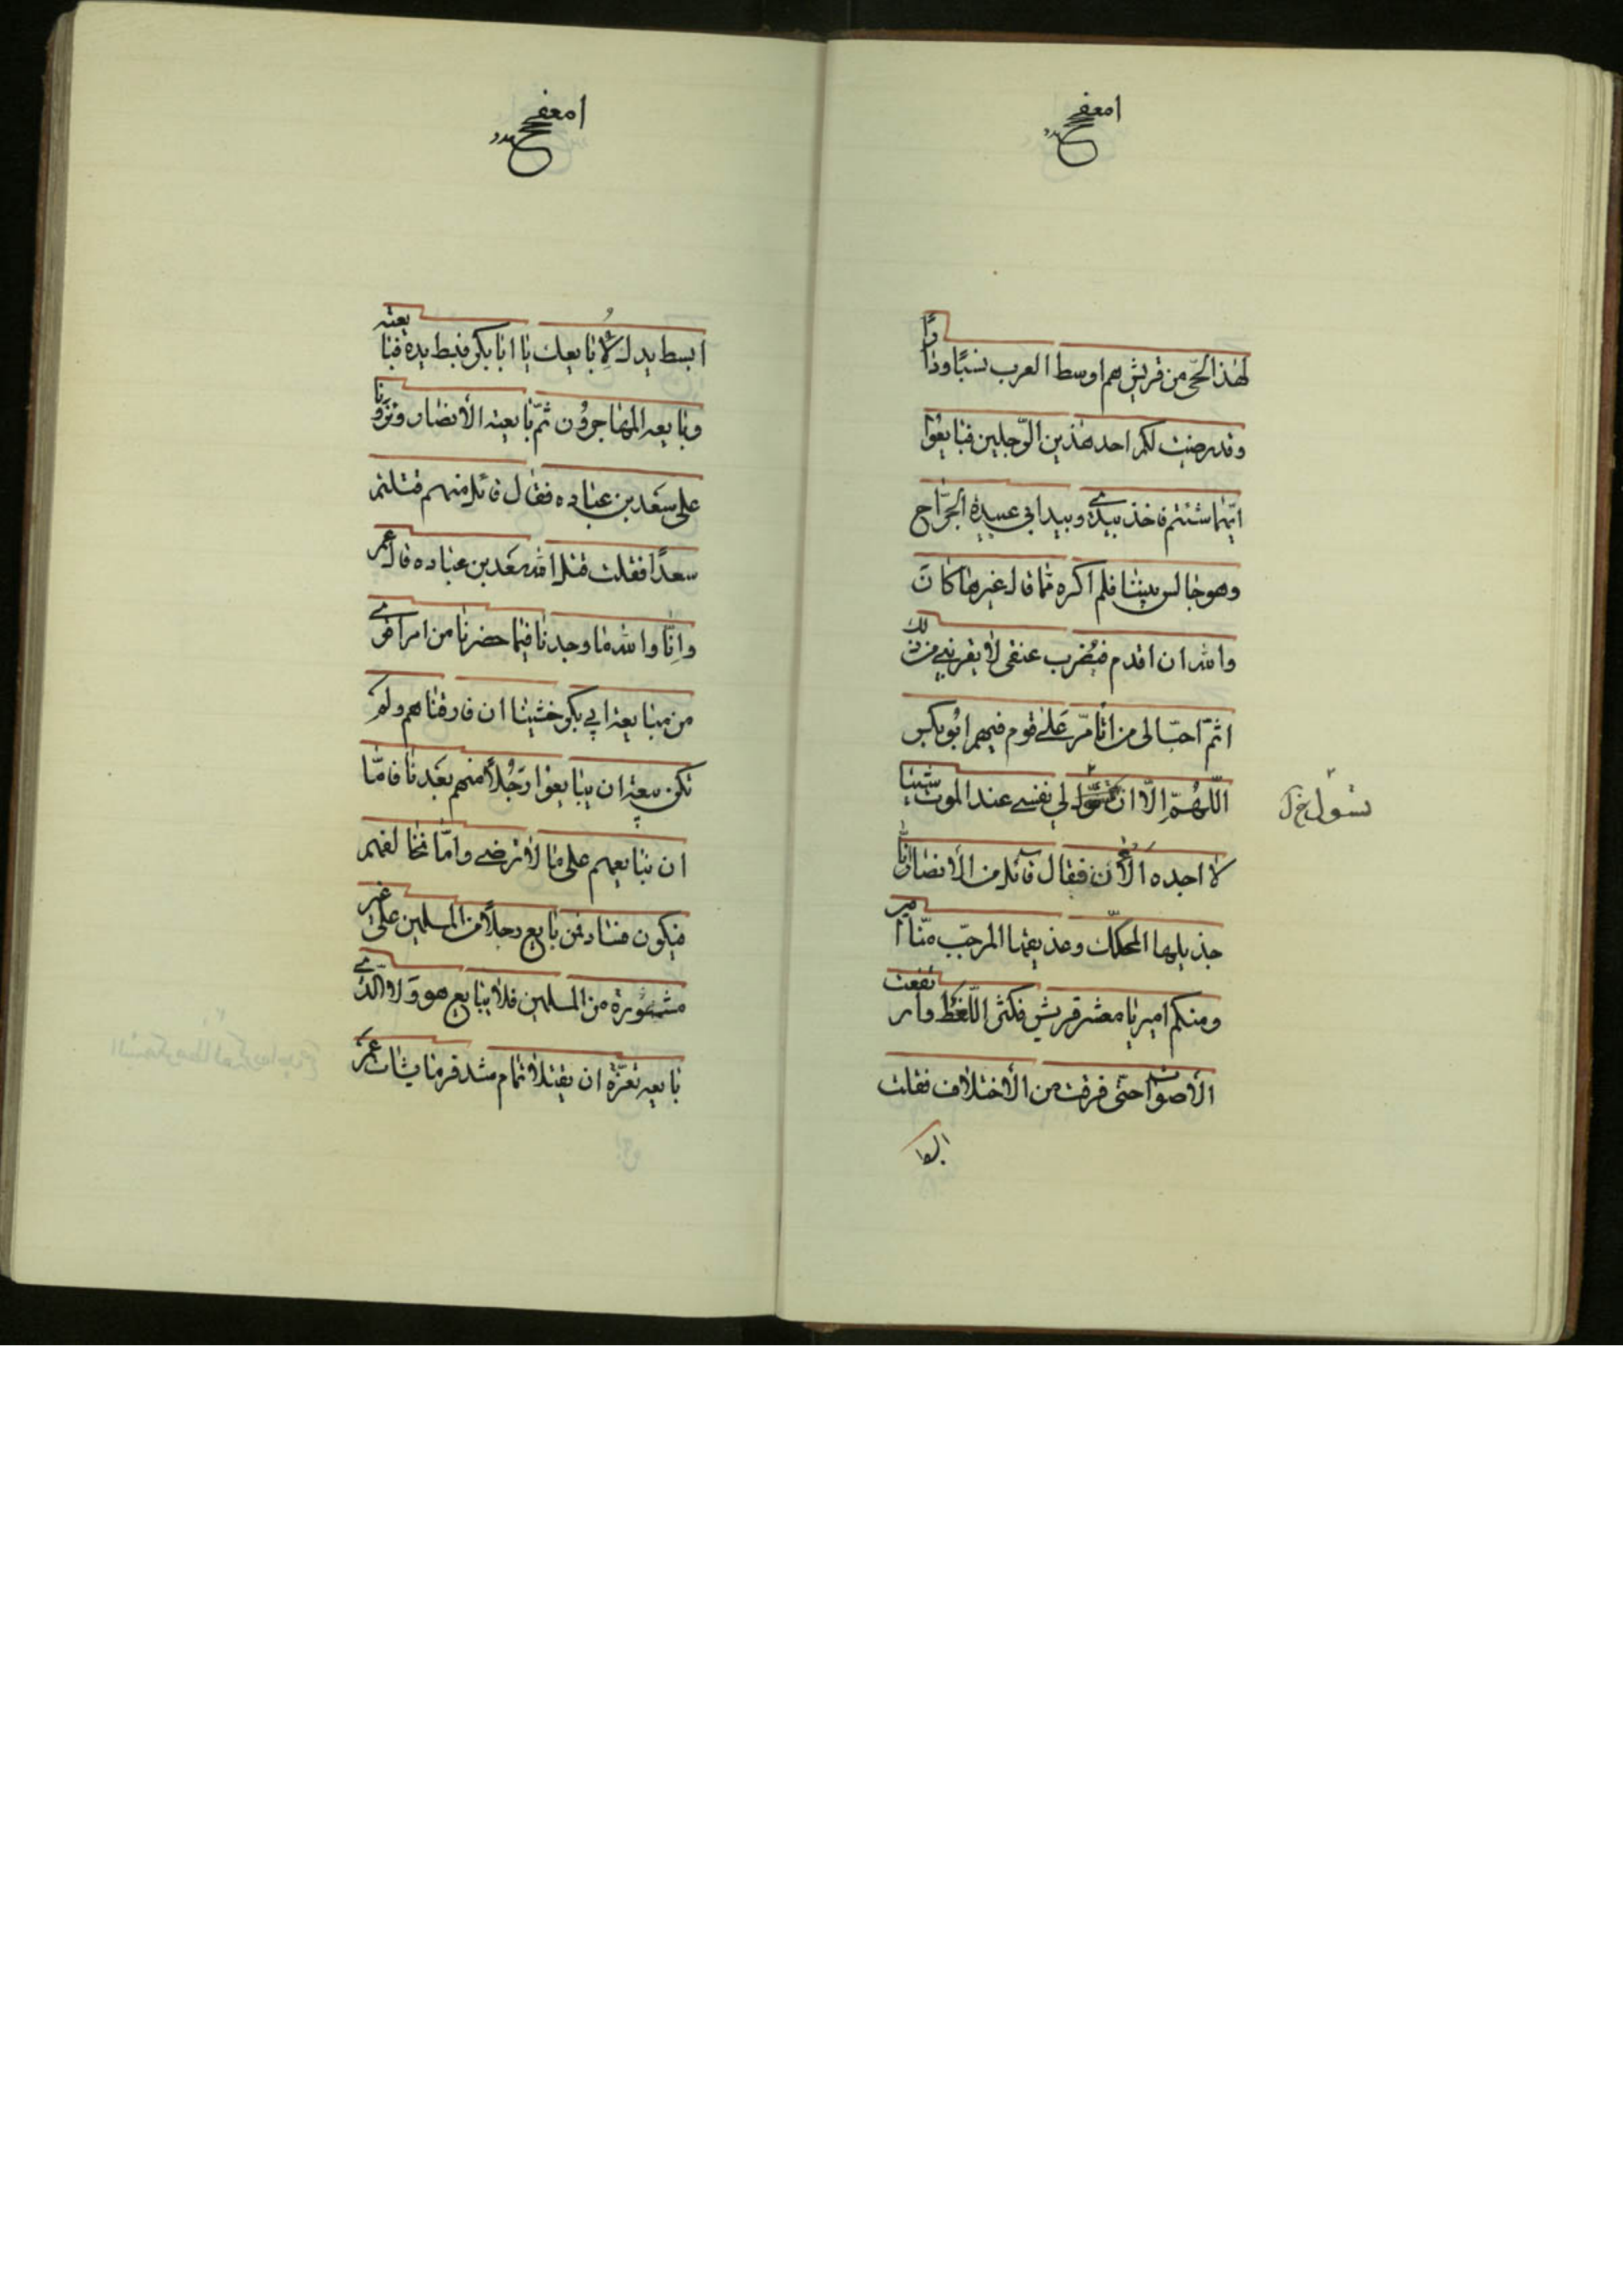 لهذا الحّى من قريش هم اوسط العرب نسبًا ودارًا
وقد رضيت لكم احد هذين الرّجلين فبايعوا
ايّهما شئتم فاخذ بيدى وبيد ابى عبيدة الجرّاح
وهو جالس بيننا فلم اكره ممّا قال غيرها كان
والله ان اقدم فيُضرب عنقى لا يقربنى من ذلك
اثم احبّ الى من ان اتامّر على قوم فيهم ابوبكر
اللّهُمّ الّا ان لى نفسى عند الموت شيئا
تسوّل خ ل
لا اجده الأن فقال قائل من الأنصار انا
جذيلها المحكّك وعذيقها المرجّب منّا امير
ومنكم امير يا معشر قريش فكثر اللّغط وارتفعت
الأصوات حتّى فرقت من الأختلاف فقلت
ابسط يدك لأبايعك يا ابا بكر فبسط يده فبايعته
وبايعه المهاجرون ثمّ بايعته الأنصار ونزونا
على سعد بن عباده فقال قائل منهم قتلتم
سعدًا فقلت قتل الله سعد بن عباده قال عمر
وانّا والله ما وجدنا فيما حضرنا من امر اقوى
من مبايعة ابي بكر خشينا ان فارقناهم ولم
تكن بيعة ان يبايعوا رَجُلًا منهم بعدنا فامّا
ان نبايعهم على ما لا نرضى وامّا نخالفهم
فيكون فسادفمن بايع رجلًا من المسلمين على غير
مشورة من المسلمين فلا يبايع هو ولا الّذى
بايعه تغرّة ان يقتلا تمام شد فرمايشات عمر